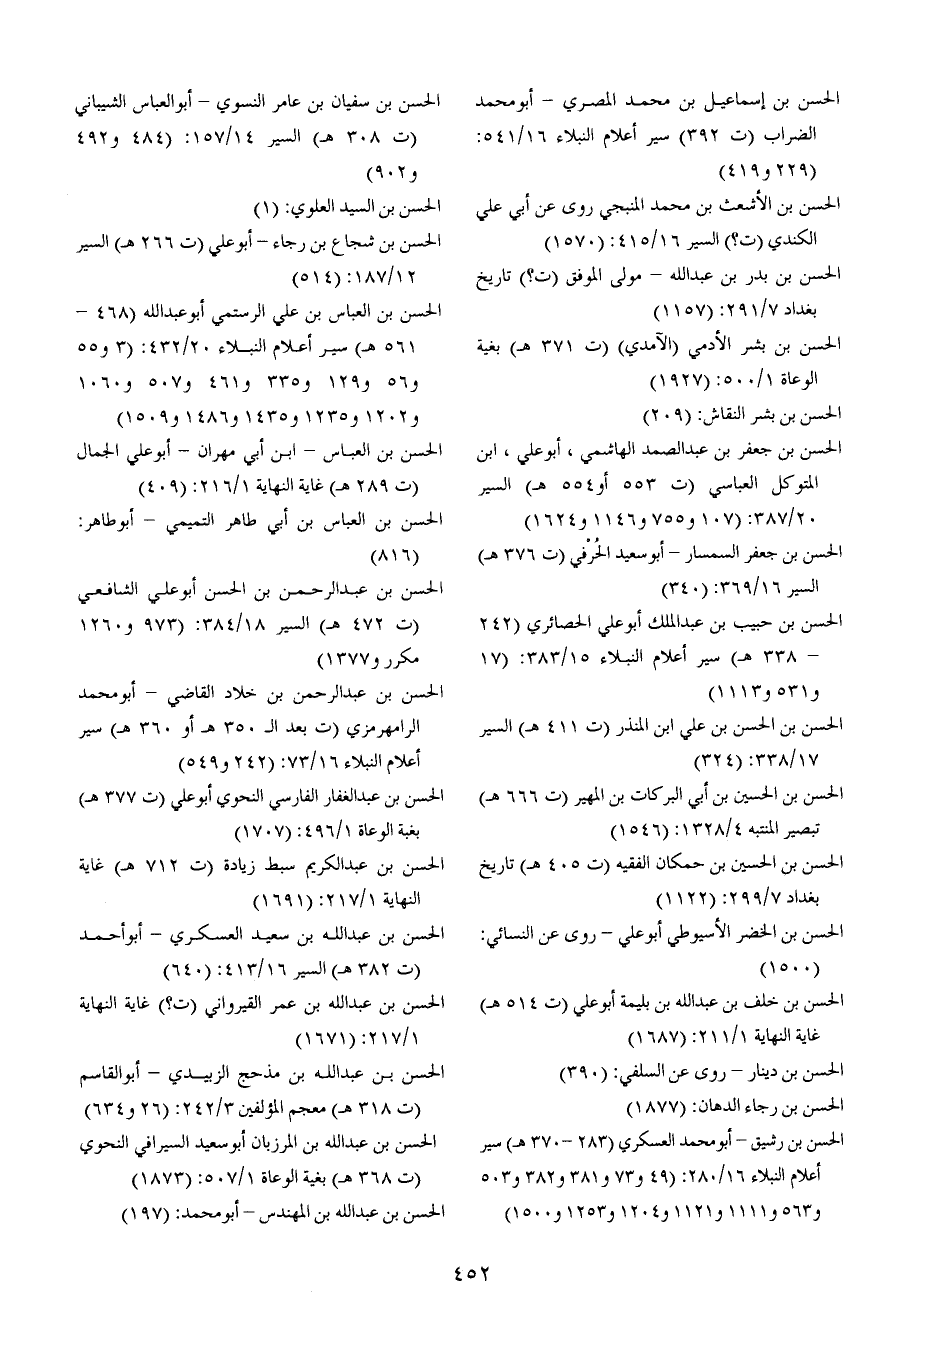 الحسن بن إسماعيل بن محمد المصري – أبومحمد
الضراب (ت ٣٩٢) سير أعلام النبلاء ٥٤١/١٦:
(٢٢٩ و٤١٩)
الحسن بن الأشعث بن محمد المنبجي روى عن أبي علي
الكندي (ت؟) السير ٤١٥/١٦: (١٥٧٠)
الحسن بن بدر بن عبدالله – مولى الموفق (ت؟) تاريخ
بغداد ٢٩١/٧: (١١٥٧)
الحسن بن بشر الأدمي (الآمدي) (ت ٣٧١ هـ) بغية
الوعاة ٥٠٠/١: (١٩٢٧)
الحسن بن بشر النقاش: (٢٠٩)
الحسن بن جعفر بن عبدالصمد الهاشمي ، أبوعلي ، ابن
المتوكل العباسي (ت ٥٥٣ أو٥٥٤ هـ) السير
٣٨٧/٢٠: (١٠٧ و٧٥٥ و١١٤٦ و١٦٢٤)
الحسن بن جعفر السمسار – أبوسعيد الحُرْفي (ت ٣٧٦ هـ)
السير ٣٦٩/١٦: (٣٤٠)
الحسن بن حبيب بن عبدالملك أبوعلي الحصائري (٢٤٢
– ٣٣٨ هـ) سير أعلام النبلاء ٣٨٣/١٥: (١٧
و٥٣١ و١١١٣)
الحسن بن الحسن بن علي ابن المنذر (ت ٤١١ هـ) السير
٣٣٨/١٧: (٣٢٤)
الحسن بن الحسين بن أبي البركات بن المهير (ت ٦٦٦ هـ)
تبصير المنتبه ١٣٢٨/٤: (١٥٤٦)
الحسن بن الحسين بن حمكان الفقيه (ت ٤٠٥ هـ) تاريخ
بغداد ٢٩٩/٧: (١١٢٢)
الحسن بن الخضر الأسيوطي أبوعلي – روى عن النسائي:
(١٥٠٠)
الحسن بن خلف بن عبدالله بن بليمة أبوعلي (ت ٥١٤ هـ)
غاية النهاية ٢١١/١: (١٦٨٧)
الحسن بن دينار – روى عن السلفي: (٣٩٠)
الحسن بن رجاء الدهان: (١٨٧٧)
الحسن بن رشيق – أبومحمد العسكري (٢٨٣ –٣٧٠ هـ) سير
أعلام النبلاء ٢٨٠/١٦: (٤٩ و٧٣ و٣٨١ و٣٨٢ و٥٠٣
و٥٦٣ و١١١١ و١١٢١ و١٢٠٤ و١٢٥٣ و١٥٠٠)
الحسن بن سفيان بن عامر النسوي – أبوالعباس الشيباني
(ت ٣٠٨ هـ) السير ١٥٧/١٤: (٤٨٤ و٤٩٢
و٩٠٢)
الحسن بن السيد العلوي: (١)
الحسن بن شجاع بن رجاء – أبوعلي (ت ٢٦٦ هـ) السير
١٨٧/١٢: (٥١٤)
الحسن بن العباس بن علي الرستمي أبوعبدالله (٤٦٨ –
٥٦١ هـ) سير أعلام النبلاء ٤٣٢/٢٠: (٣ و٥٥
و٥٦ و١٢٩ و٣٣٥ و٤٦١ و٥٠٧ و١٠٦٠
و١٢٠٢ و١٢٣٥ و١٤٣٥ و١٤٨٦ و١٥٠٩)
الحسن بن العباس – ابن أبي مهران – أبوعلي الجمال
(ت ٢٨٩ هـ) غاية النهاية ٢١٦/١: (٤٠٩)
الحسن بن العباس بن أبي طاهر التميمي – أبوطاهر:
(٨١٦)
الحسن بن عبدالرحمن بن الحسن أبوعلي الشافعي
(ت ٤٧٢ هـ) السير ٣٨٤/١٨: (٩٧٣ و١٢٦٠
مكرر و١٣٧٧)
الحسن بن عبدالرحمن بن خلاد القاضي – أبومحمد
الرامهرمزي (ت بعد الـ ٣٥٠ هـ أو ٣٦٠ هـ) سير
أعلام النبلاء ٧٣/١٦: (٢٤٢ و٥٤٩)
الحسن بن عبدالغفار الفارسي النحوي أبوعلي (ت ٣٧٧ هـ)
بغية الوعاة ٤٩٦/١: (١٧٠٧)
الحسن بن عبدالكريم سبط زيادة (ت ٧١٢ هـ) غاية
النهاية ٢١٧/١: (١٦٩١)
الحسن بن عبدالله بن سعيد العسكري – أبوأحمد
(ت ٣٨٢ هـ) السير ٤١٣/١٦: (٦٤٠)
الحسن بن عبدالله بن عمر القيرواني (ت؟) غاية النهاية
٢١٧/١: (١٦٧١)
الحسن بن عبدالله بن مذحج الزبيدي – أبوالقاسم
(ت ٣١٨ هـ) معجم المؤلفين ٢٤٢/٣: (٢٦ و٦٣٤)
الحسن بن عبدالله بن المرزبان أبوسعيد السيرافي النحوي
(ت ٣٦٨ هـ) بغية الوعاة ٥٠٧/١: (١٨٧٣)
الحسن بن عبدالله بن المهندس – أبومحمد: (١٩٧)
٤٥٢